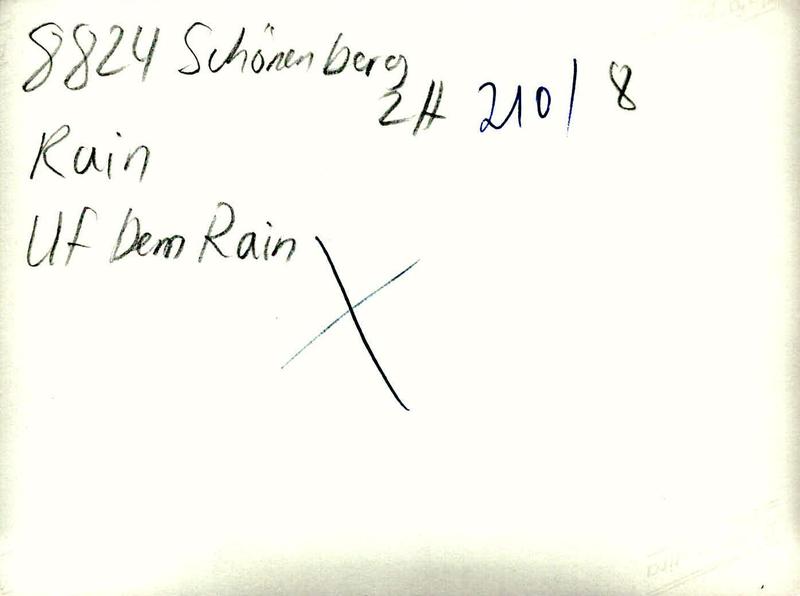 8824 Schönenberg
ZH 210/8
Rain
Uf Dem Rain